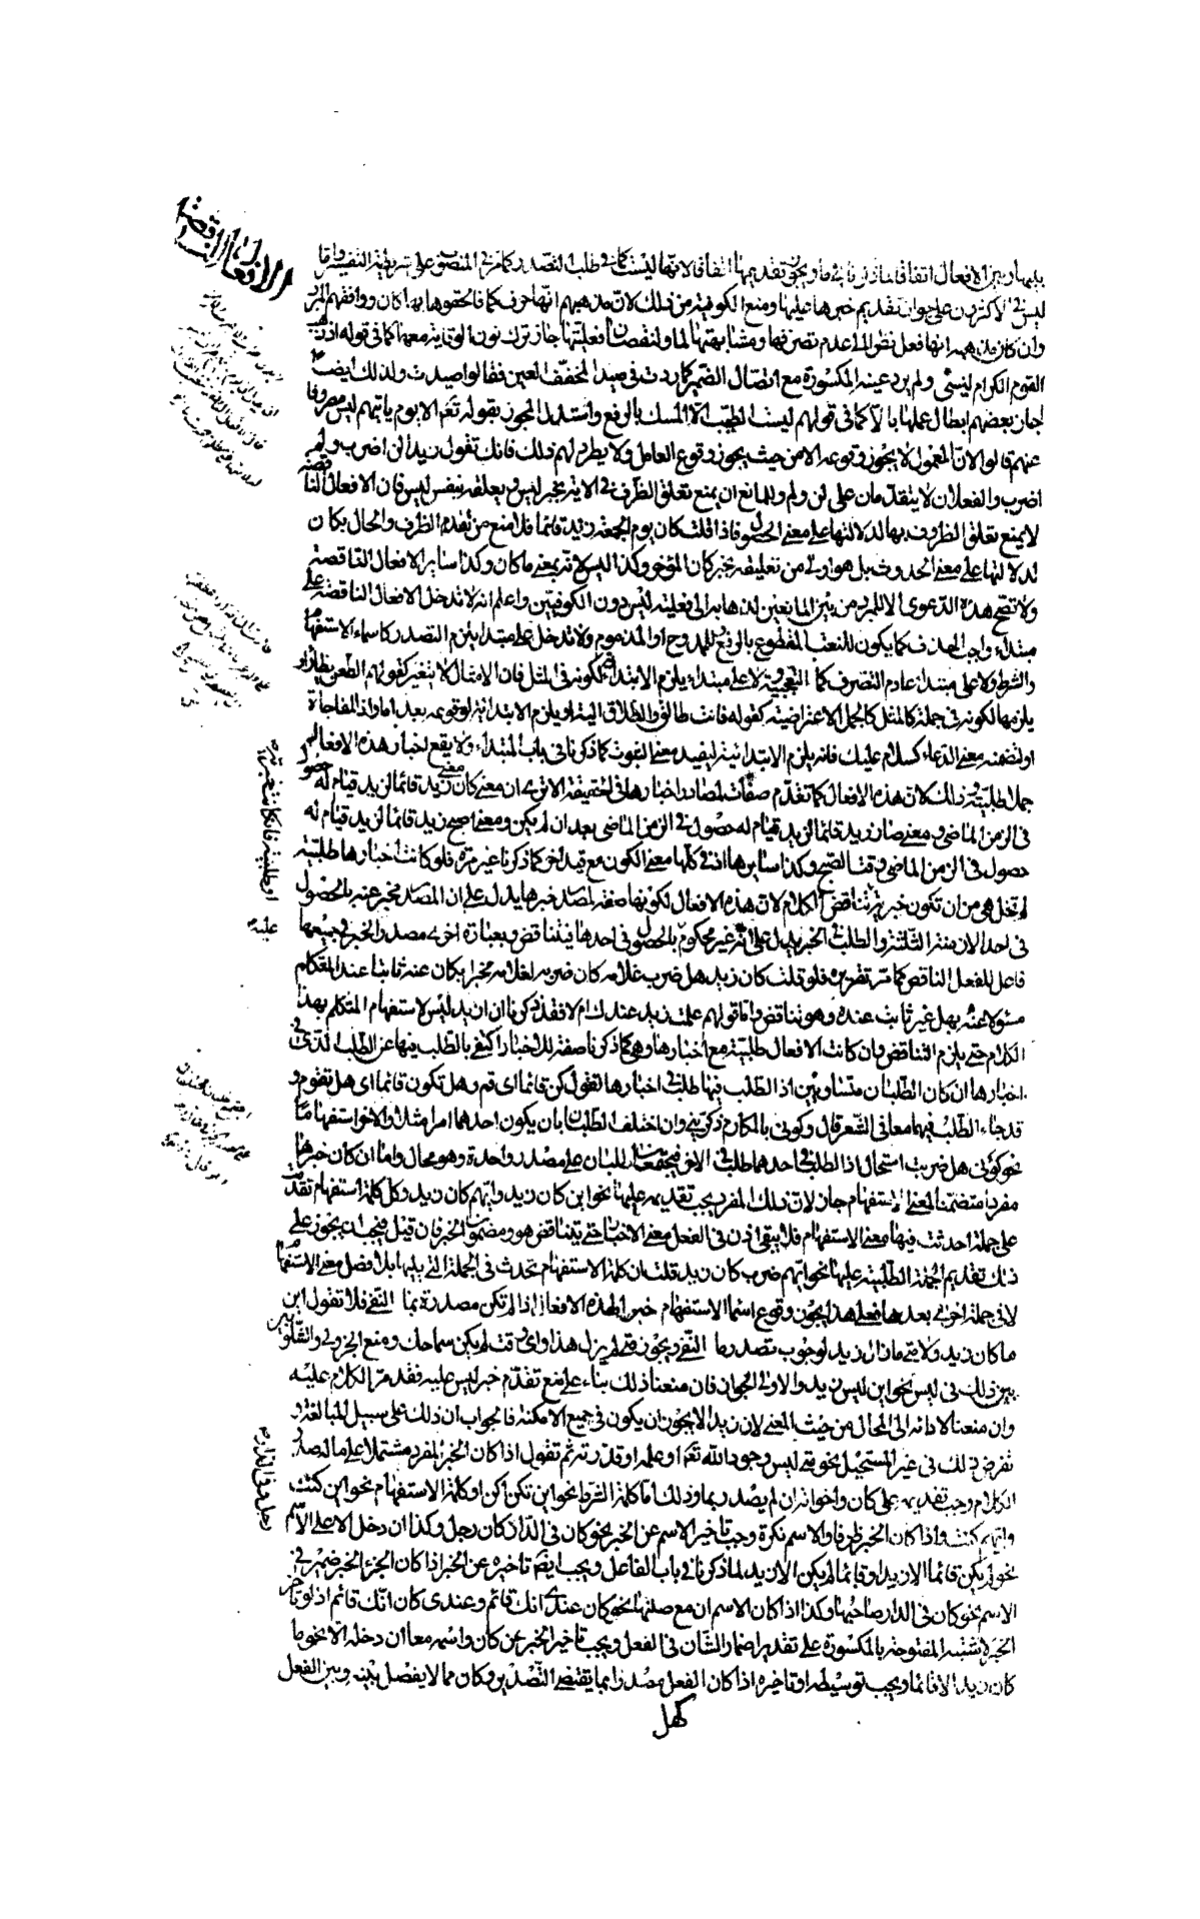 الافعال الناقصة
ليس فالاكثرون على جواز تقديم خبرها عليها ومنع الكوفية من ذلك لان مذهبهم انها حرف كما فالحقوها بها كان ووافقهم المبرد
وان كان مذهبه انها فعل نظرا الى عدم تصرفها ومشابهتها لما ولنقصان فعليتها جاز ترك نون الوقاية معها كما فى قوله اذ ذهب
القوم الكرام ليسى ولم يرد عينه المكسورة مع اتصال الضمير كما ردت فى صيد المخفف العين فقالوا صيدت ولذلك ايضا
اجاز بعضهم ابطال عملها بالا كما فى قولهم ليس الطيب الا المسك بالرفع واستدل المجوز بقوله تعم الا يوم ياتيهم ليس مصروفا
عنهم قالوا لان المعمول لا يجوز وقوعه الا من حيث يجوز وقوع العامل ولا يطرد لهم ذلك فانك تقول زيدا لن اضرب ولم
اضرب والفعلان لا يتقدمان على لن ولم وللمانع ان يمنع تعلق الظرف فى الاية بخبر ليس ويعلقه بنفس ليس فان الافعال الناقصة
لا يمنع تعلق الظروف بها لدلالتها على معنى الحصول فاذا قلت كان يوم الجمعة زيد قائما فلا منع من تقدم الظرف والحال بكان
لدلالتها على معنى الحدوث بل هو اولى من تعليقه بخبر كان المؤخر وكذا ليس لانه بمعنى ما كان وكذا ساير الافعال الناقصة
ولا تصح هذه الدعوى الا للمبرد من بين المانعين لذهابه الى فعلية ليس دون الكوفيين واعلم انه لا تدخل الافعال الناقصة على
مبتداء واجب الحذف كما يكون للنعت المقطوع بالرفع للمدوح او المذموم ولا تدخل على مبتدا يلزم التصدر كاسماء الاستفهام
والشرط ولا على مبتداء عادم التصرف كما التعجبية ولا على مبتداء يلزم الابتداء لكونه فى المثل فان الامثال لا يتغير كقولهم الطعن يظأر او
يلزمها لكونه فى جملة كالمثل كالجمل الاعتراضية كقوله فانت طالق والطلاق الية او يلزم الابتدائية لوقوعه بعد اما واذا المفاجاة
او لتضمنه معنى الدعاء كسلام عليك فانه يلزم الابتدائية ليفيد معنى الثبوت كما ذكرنا فى باب المبتداء ولا يقع اخبار هذه الافعال
جملا طلبية وذلك لان هذه الافعال كما تقدم صفات لمصادر اخبارها فى الحقيقة الا ترى ان معنى كان زيد قائما لزيد قيام له حصول
فى الزمن الماضى ومعنى صار زيد قائما لزيد قيام له حصول فى الزمن الماضى بعد ان لم يكن ومعنى اصبح زيد قائما لزيد قيام له
حصول فى الزمن الماضى وقت الصبح وكذا سايرها اذ فى كلها معنى الكون مع قيد اخر كما ذكرنا غير مرة فلو كانت اخبارها طلبية
لم تخل هى من ان تكون خبرية تناقض الكلام لان هذه الافعال لكونها صفة لمصدر خبرها يدل على ان المصدر مخبر عنه بالحصول
فى احد الازمنة الثلثة والطلب فى الخبر يدل على انه غير محكوم بالحصول فى احدها فيتناقض وبعبارة اخرى مصدر الخبر فى جميعها
فاعل للفعل الناقص كما مر تقريره فلو قلت كان زيد هل ضرب غلامه كان ضربه لغلامه مخبرا بكان عنه ثابتا عند المتكلم
مسئولا عنه بهل غير ثابت عنده وهو تناقض واما قولهم علمت زيد عندك ام لا فقد ذكرنا ان ازيد ليس لاستفهام المتكلم بهذا
الكلام حتى يلزم التناقض وان كانت الافعال طلبية مع اخبارها وهى كما ذكرنا صفة للاخبار اكتفى بالطلب فيها عن الطلب الذى فى
اخبارها ان كان الطلبان متساويين اذ الطلب فيها طلب فى اخبارها تقول كن قائما اى قم وهل تكون قائما اى هل تقوم و
قد جاء الطلب فيهما معا فى الشعر قال وكونى بالمكارم ذكرينى وان اختلف الطلبان بان يكون احدهما امرا مثلا والاخر استفهاما
نحو كونى هل ضربت استحال اذ الطلب فى احدهما طلب فى الاخر فيجتمع الطلبان على مصدر واحدة وهو محال واما ان كان خبرها
مفردا متضمنا لمعنى الاستفهام جاز لان ذلك المفرد يجب تقديمه عليها نحو اين كان زيد وايهم كان زيد وكل كلمة استفهام تقدمت
على جملة احدثت فيها معنى الاستفهام فلا يبقى اذن فى الفعل معنى الاخبار حتى يتناقض هو ومضمون الخبر فان قيل فيجب ان يجوز على
ذلك تقديم الجملة الطلبية عليها نحو ايهم ضرب كان زيد قلت ان كلمة الاستفهام تحدث فى الجملة التى يليها بلا فصل معنى الاستفهام
لا فى جملة اخرى بعدها فعلى هذا يجوز وقوع اسماء الاستفهام خبرا لهذه الافعال اذا لم تكن مصدرة بما النفى فلا تقول اين
ما كان زيد ولا متى ما زال زيد لوجوب تصدر ما النفى ويجوز متى لم يزل هذا واى وقت لم يكن سماحك ومنع الجزولى والشلوبين
ذلك فى ليس نحو اين ليس زيد والاولى الجواز فان منعنا ذلك بناء على منع تقدم خبر ليس عليه فقد مر الكلام عليه
وان منعنا لادائه الى المحال من حيث المعنى لان زيدا لا يجوز ان يكون فى جميع الامكنة فالجواب ان ذلك على سبيل المبالغة و
نفرض ذلك فى غير المستحيل نحو متى ليس وجود الله تعم او علمه او قدرته ثم تقول اذا كان الخبر المفرد مشتملا على ماله صدر
الكلام وجب تقديمه على كان واخواته ان لم يصدر بما وذلك اما كلمة الشرط نحو اين تكن اكن او كلمة الاستفهام نحو اين كنت
وايهم كنت واذا كان الخبر ظرفا والاسم نكرة وجب تاخير الاسم عن الخبر نحو كان فى الدار كان رجل وكذا ان دخل الا على الاسم
نحو لم يكن قائما الا زيد او قائما لم يكن الا زيد لما ذكرنا فى باب الفاعل ويجب ايضا تاخيره عن الخبر اذا كان الجزء الخبر ضمير فى
الاسم نحو كان فى الدار صاحبها وكذا اذا كان الاسم ان مع صلتها نحو كان عندى انك قائم وعندى كان انك قائم اذ لو تاخر
الخبر لاشتبه المفتوحة بالمكسورة على تقدير اضمار الشان فى الفعل ويجب تاخير الخبر عن كان واسمه معا ان دخله الا نحو ما
كان زيد الا قائما ويجب توسيطه او تاخيره اذا كان الفعل مصدرا بما يقتضى التصدير وكان مما لا يفصل بينه وبين الفعل
كهل